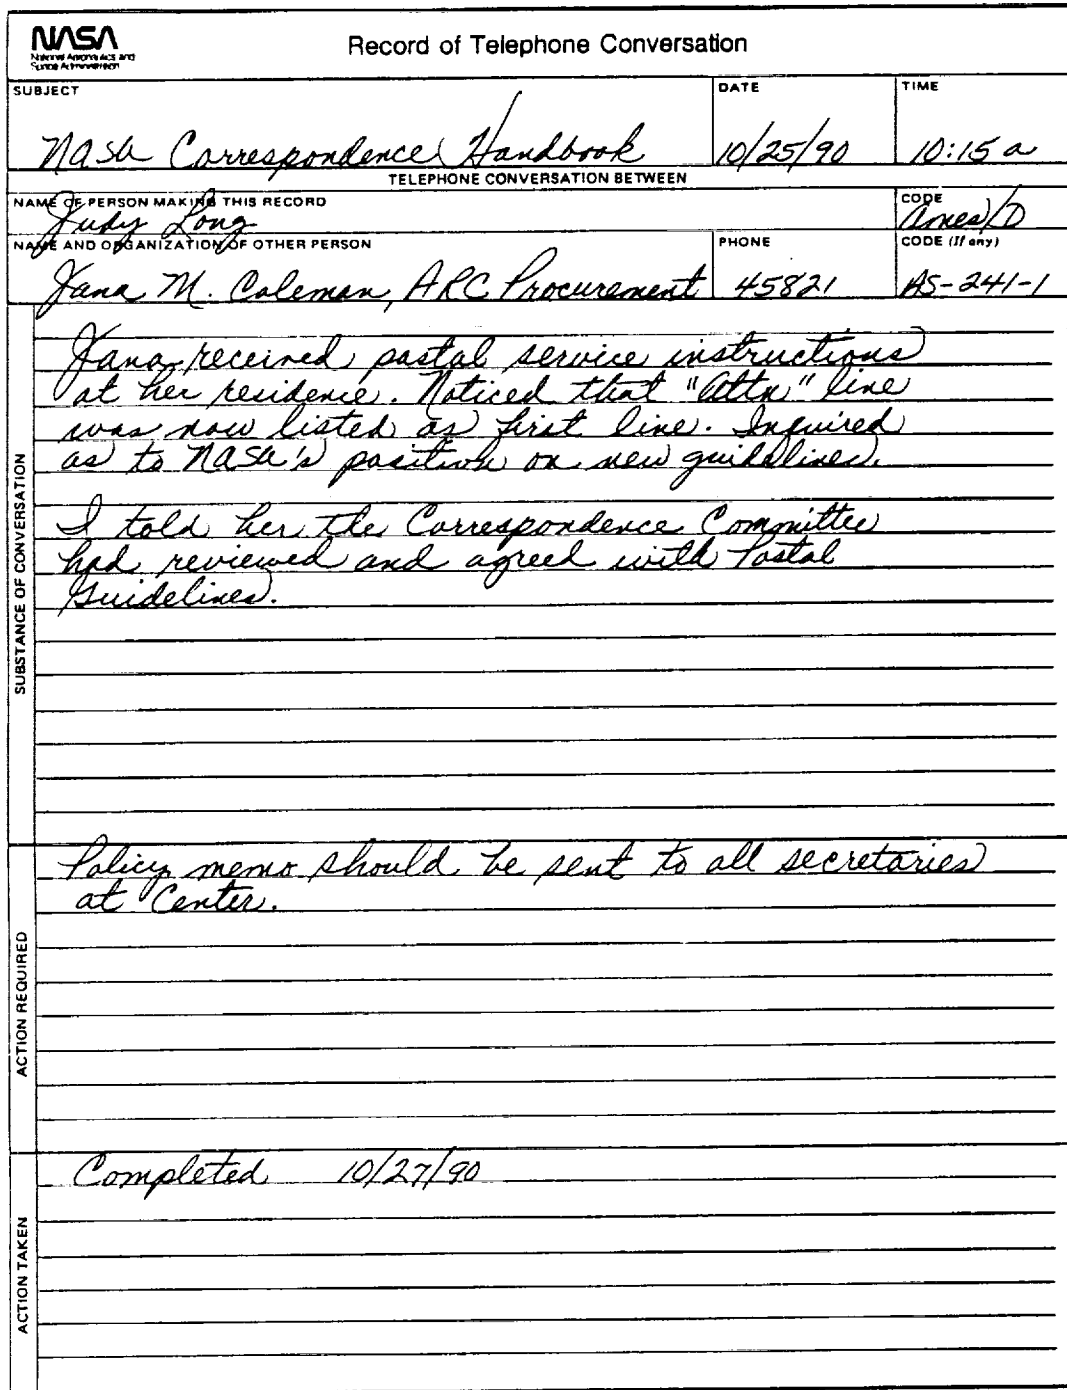 NASA
National Aeronautics and
Space Administration
Record of Telephone Conversation
SUBJECT
DATE
TIME
Nasa Correspondence Handbook
10/25/90
10:15 a
TELEPHONE CONVERSATION BETWEEN
NAME OF PERSON MAKING THIS RECORD
CODE
Judy Long
Ames/D
NAME AND ORGANIZATION OF OTHER PERSON
PHONE
CODE (If any)
Jana M. Coleman, ARC Procurement
45821
AS-241-1
SUBSTANCE OF CONVERSATION
Jana received postal service instructions
at her residence. Noticed that "Attn" line
was now listed as first line. Inquired
as to Nasa's position on new guidelines.
I told her the Correspondence Committee
had reviewed and agreed with Postal
Guidelines.
ACTION REQUIRED
Policy memo should be sent to all secretaries
at Center.
ACTION TAKEN
Completed 10/27/90